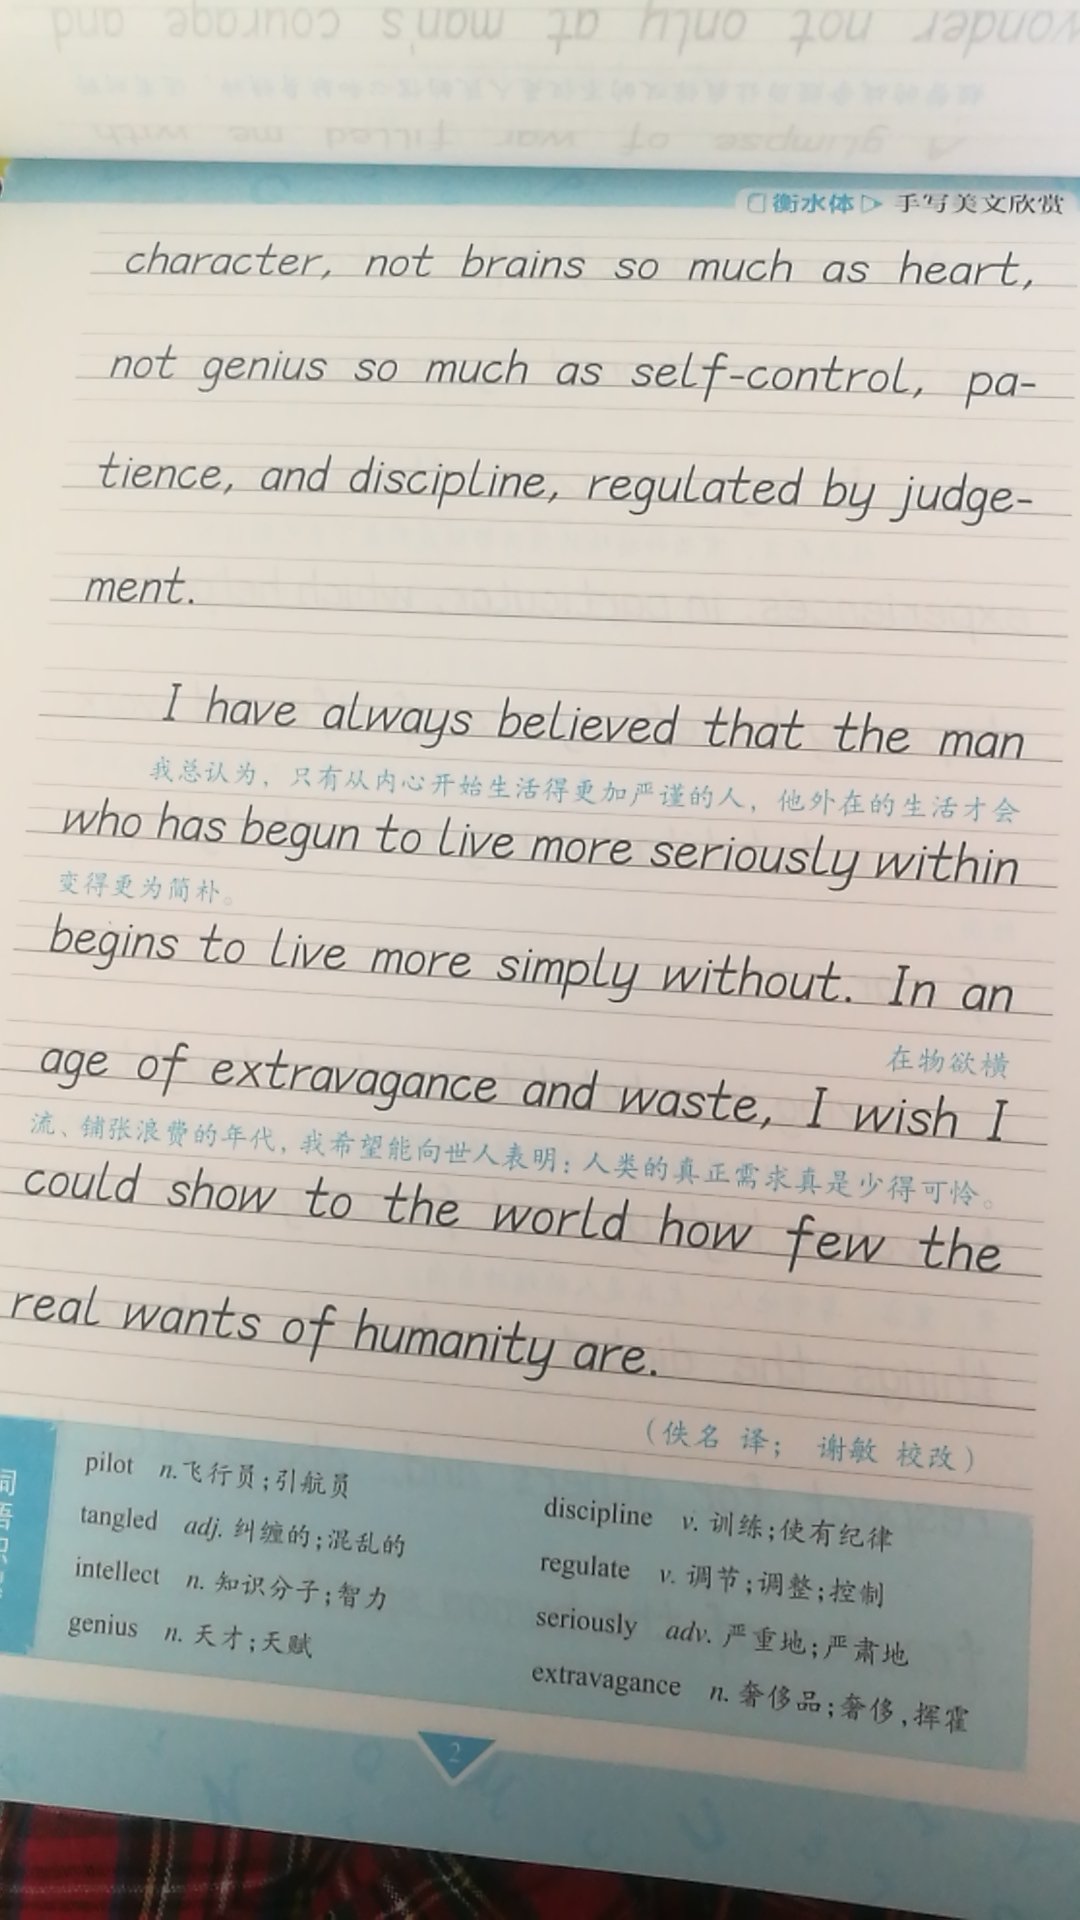 wonder not only at man's courage and
A glimpse of war filled me with
衡水体 手写美文欣赏
character, not brains so much as heart,
not genius so much as self-control, pa-
tience, and discipline, regulated by judge-
ment.
I have always believed that the man
我总认为，只有从内心开始生活得更加严谨的人，他外在的生活才会
who has begun to live more seriously within
变得更为简朴。
begins to live more simply without. In an
在物欲横
age of extravagance and waste, I wish I
流、铺张浪费的年代，我希望能向世人表明：人类的真正需求真是少得可怜。
could show to the world how few the
real wants of humanity are.
（佚名 译； 谢敏 校改）
pilot n.飞行员；引航员
tangled adj.纠缠的；混乱的
intellect n.知识分子；智力
genius n.天才；天赋
discipline v.训练；使有纪律
regulate v.调节；调整；控制
seriously adv.严重地；严肃地
extravagance n.奢侈品；奢侈，挥霍
2